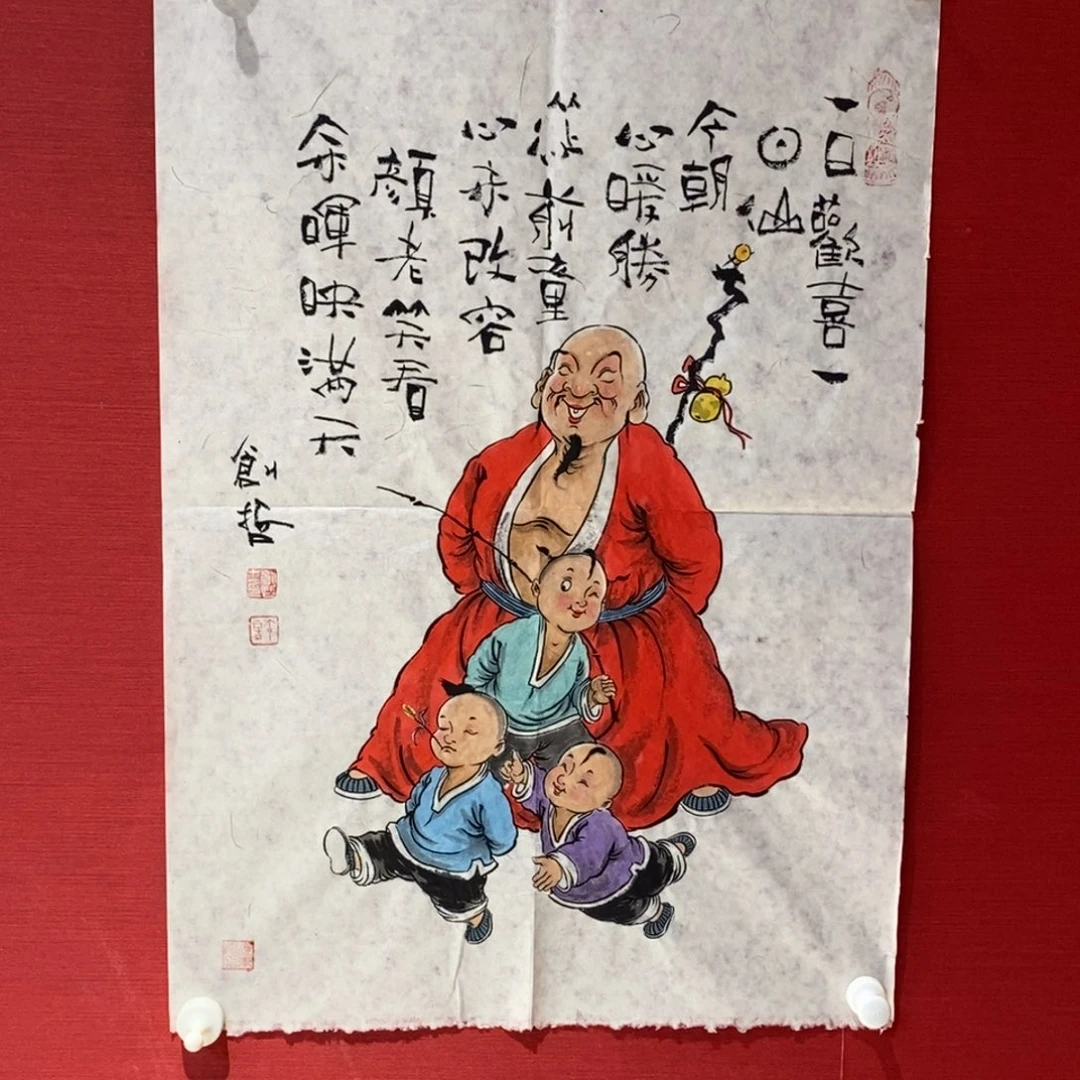 一日歡喜一
日仙
今朝
心暖勝
從前童
心未改容
顏老笑看
余暉映滿天
創哲